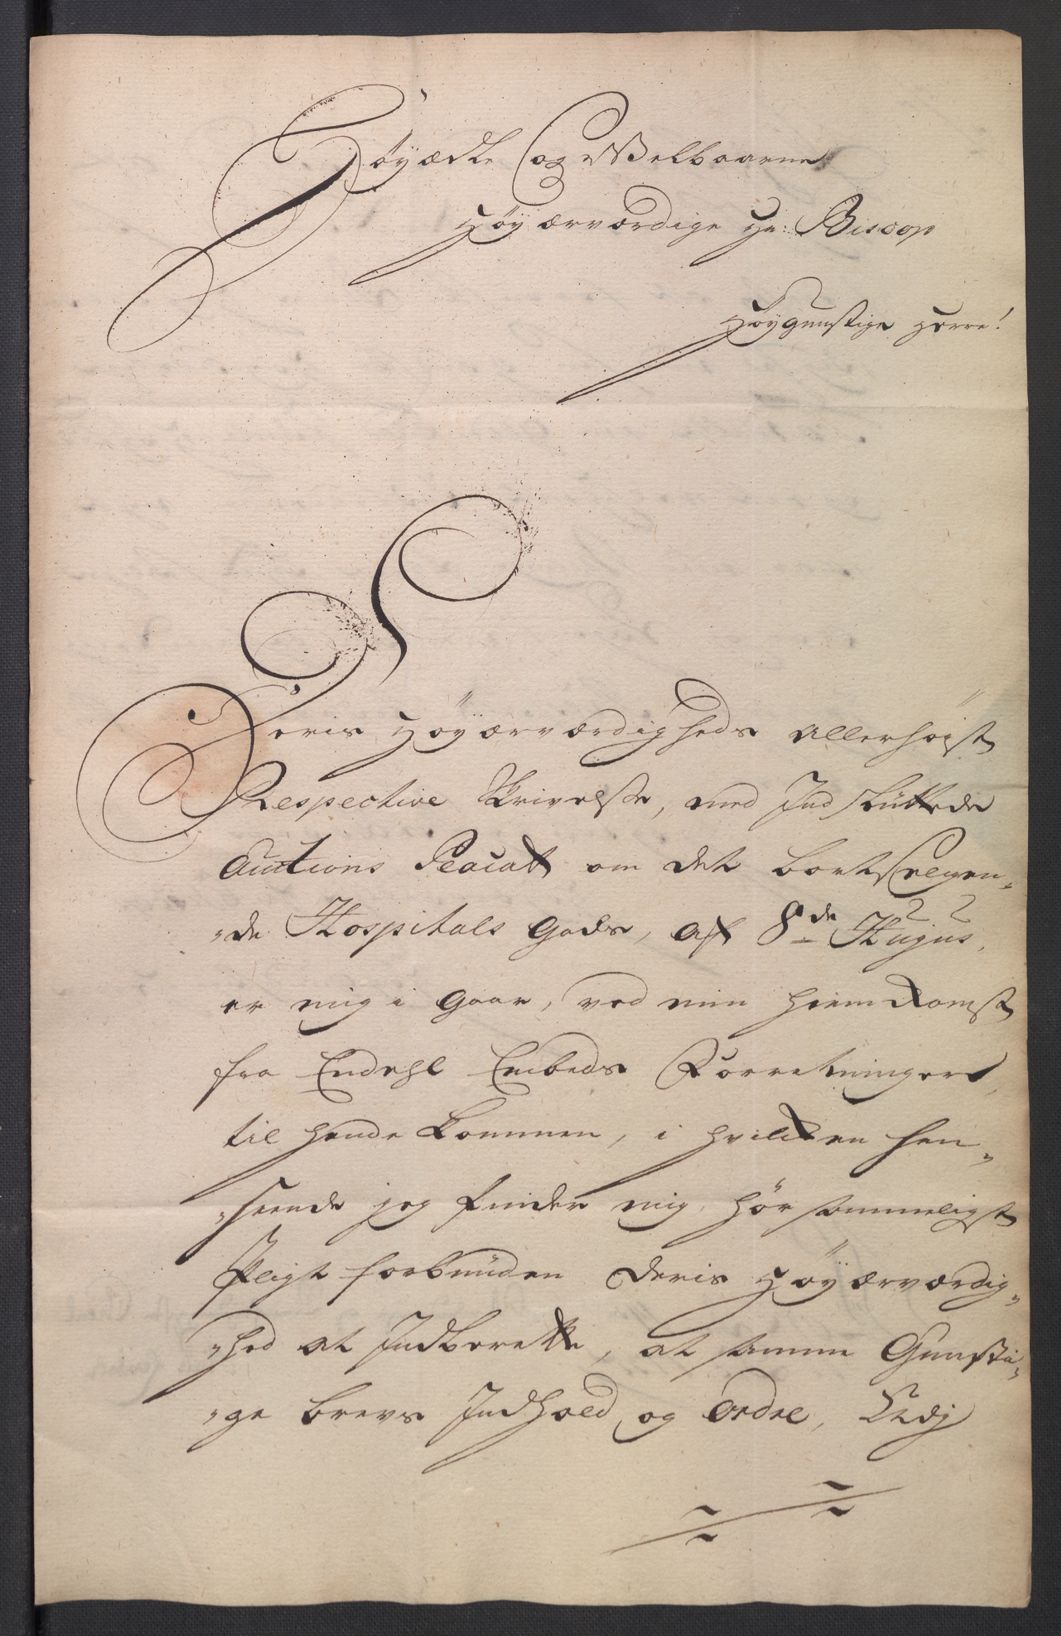 Høyædle og Welbaarne
Høyærværdige Hr: Biscop
Høygunstige Herre!
Deris Høyærværdigheds allerhøist
Respective Skrivelse, med Indsluttede
Auctions Placat om det bortselgen„
„de Hospitals Gods, af 8de Hujus,
er mig i Gaar, ved min hiemkomst
fra Endehl Embeds Forretninger,
til hende kommen, i hvilken hen„
„seende jeg finder mig hørsommeligst
Pligt forbunden Deris Høyærværdig„
„hed at Indberette, at samme Gunsti„
„ge brevs Indhold og Ordre,